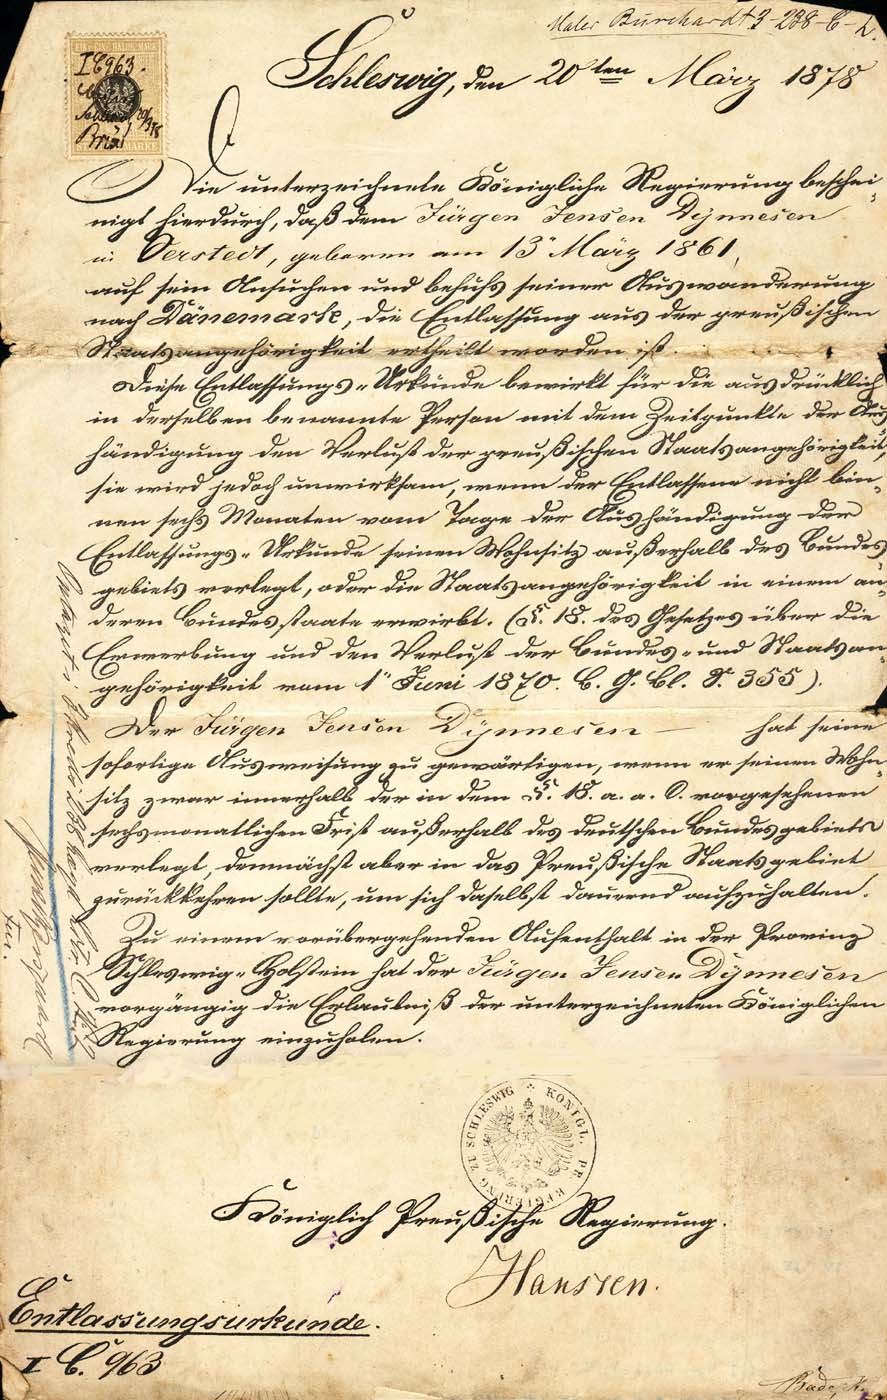 Maler Burchardt 3-238-C-
Schleswig, den 20ten März 1878
I C 963.
Die unterzeichnete Königliche Regierung beschei-
nigt hierdurch, daß dem Jürgen Jensen Dynnesen
in Oerstedt, geboren am 13 März 1861,
auf sein Ansuchen und behufs seiner Auswanderung
nach Dänemark, die Entlassung aus der preußischen
Staatsangehörigkeit ertheilt worden ist.
Diese Entlassungs-Urkunde bewirkt für die ausdrücklich
in derselben benannte Person mit dem Zeitpunkte der Aus-
händigung den Verlust der preußischen Staatsangehörigkeit,
sie wird jedoch unwirksam, wenn der Entlassene nicht bin-
nen sechs Monaten vom Tage der Aushändigung der
Entlassungs-Urkunde seinen Wohnsitz außerhalb des Bundes-
gebiets verlegt, oder die Staatsangehörigkeit in einem an-
deren Bundesstaate erwirbt. (§. 18. des Gesetzes über die
Erwerbung und den Verlust der Bundes- und Staatsan-
gehörigkeit vom 1" Juni 1870. B. G. Bl. S. 355).
Der Jürgen Jensen Dynnesen — hat seine
sofortige Ausweisung zu gewärtigen, wenn er seinen Wohn-
sitz zwar innerhalb der in dem §. 18. a. a. O. vorgesehenen
sechsmonatlichen Frist außerhalb des deutschen Bundesgebiets
verlegt, demnächst aber in das Preußische Staatsgebiet
zurückkehren sollte, um sich daselbst dauernd aufzuhalten.
Zu einem vorübergehenden Aufenthalt in der Provinz
Schleswig-Holstein hat der Jürgen Jensen Dynnesen
vorgängig die Erlaubniß der unterzeichneten Königlichen
Regierung einzuholen.
KÖNIGL. PR. REGIERUNG ZU SCHLESWIG
Königlich Preußische Regierung.
Hanssen.
Entlassungsurkunde.
I C. 963